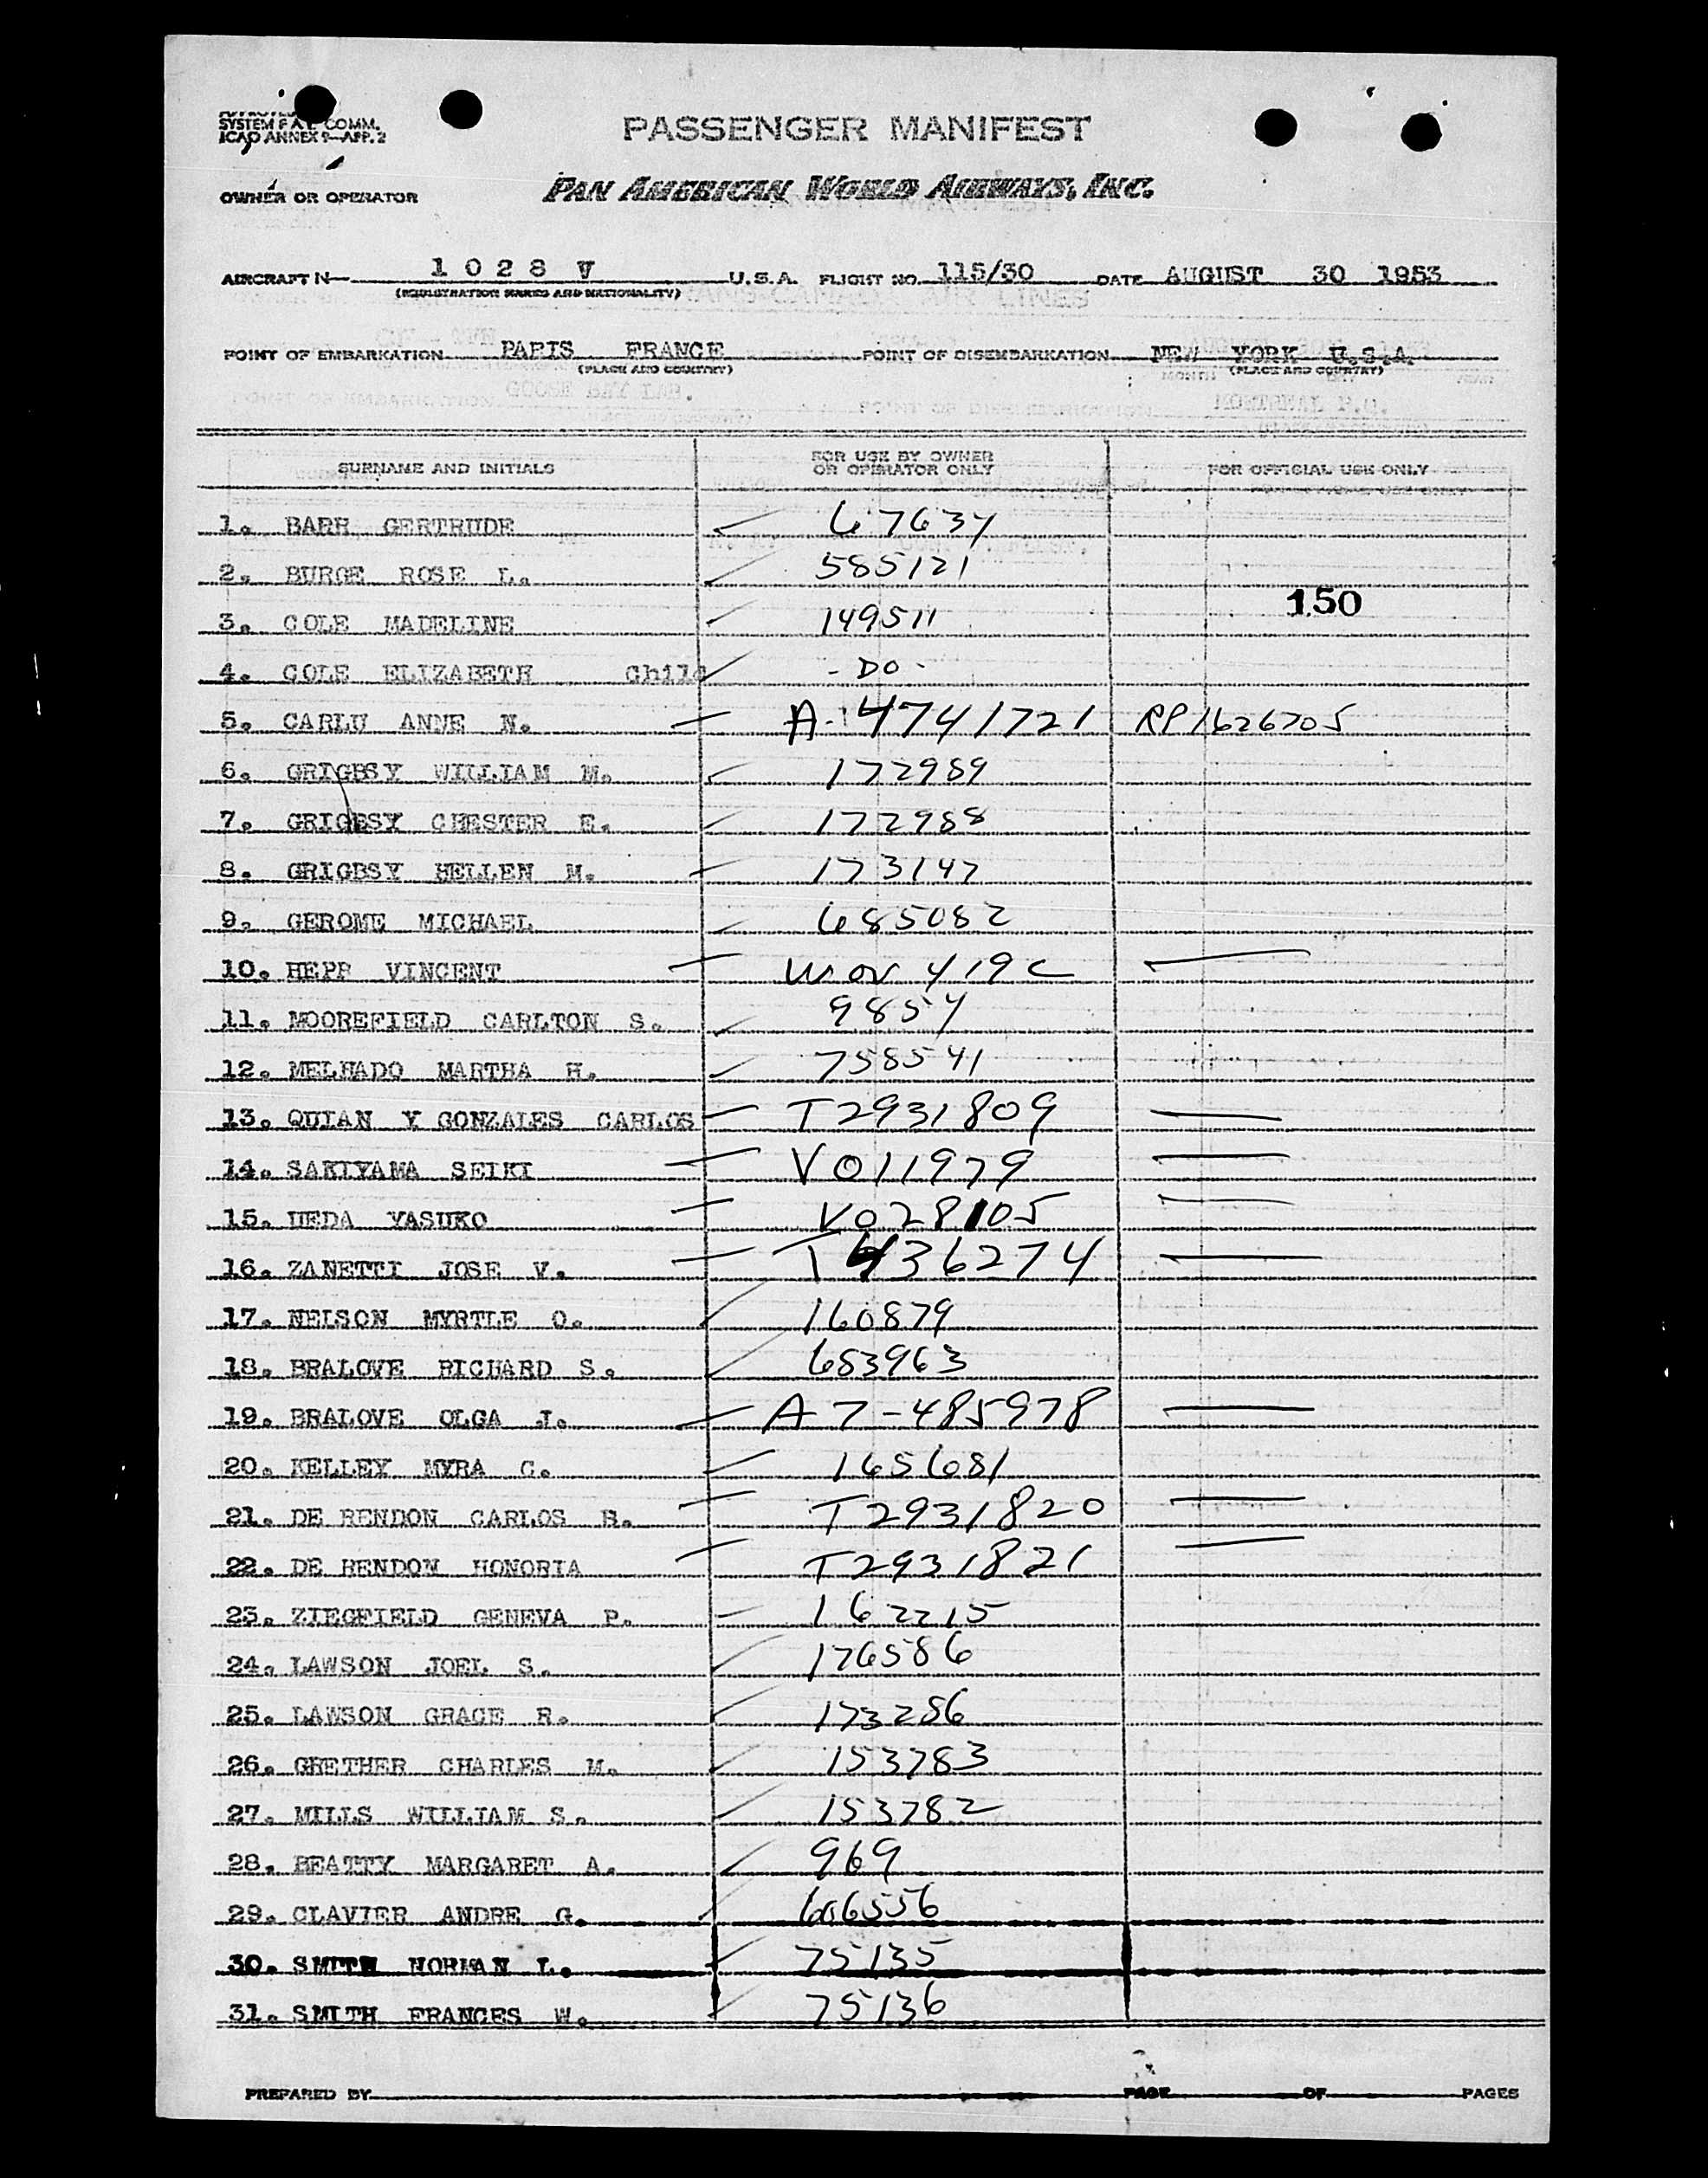 SYSTEM F.A.L. COMM.
ICAO ANNEX 9—APP. 2
PASSENGER MANIFEST
OWNER OR OPERATOR PAN AMERICAN WORLD AIRWAYS, INC.
AIRCRAFT N— 1 0 2 8 V U.S.A. FLIGHT NO. 115/30 DATE AUGUST 30 1953
(REGISTRATION MARKS AND NATIONALITY)
POINT OF EMBARKATION PARIS FRANCE POINT OF DISEMBARKATION NEW YORK U.S.A.
(PLACE AND COUNTRY) (PLACE AND COUNTRY)
SURNAME AND INITIALS FOR USE BY OWNER OR OPERATOR ONLY FOR OFFICIAL USE ONLY
1. BARR GERTRUDE 67634
2. BURGE ROSE L. 585121
150
3. COLE MADELINE 149511
4. COLE ELIZABETH Child - DO -
5. CARLU ANNE N. A-4741721 RP1626705
6. GRIGBSY WILLIAM M. 172989
7. GRIGBSY CHESTER E. 172988
8. GRIGBSY HELLEN M. 173147
9. GEROME MICHAEL 685082
10. HEPP VINCENT 419C
11. MOOREFIELD CARLTON S. 9854
12. MELHADO MARTHA H. 758541
13. QUIAN Y GONZALES CARLOS T2931809
14. SAKIYAMA SEIKI V011979
15. UEDA YASUKO V028105
16. ZANETTI JOSE V. T436274
17. NELSON MYRTLE O. 160879
18. BRALOVE RICHARD S. 683963
19. BRALOVE OLGA J. A7-485978
20. KELLEY MYRA C. 165681
21. DE RENDON CARLOS R. T2931820
22. DE RENDON HONORIA T2931821
23. ZIEGFIELD GENEVA P. 162215
24. LAWSON JOEL S. 176586
25. LAWSON GRACE R. 173286
26. GRETHER CHARLES M. 153783
27. MILLS WILLIAM S. 153782
28. BEATTY MARGARET A. 969
29. CLAVIER ANDRE G. 606556
30. SMITH NORMAN L. 75135
31. SMITH FRANCES W. 75136
PREPARED BY PAGE OF PAGES